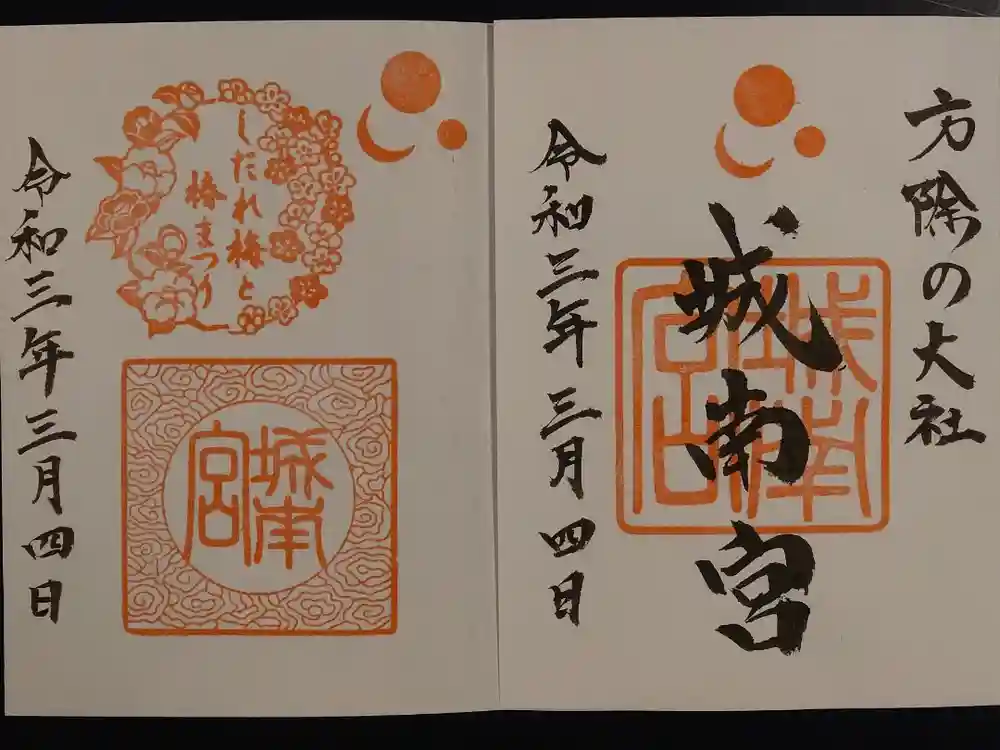 方除の大社
城南宮
城南宮
令和三年三月四日
しだれ梅と
椿まつり
城南宮
令和三年三月四日